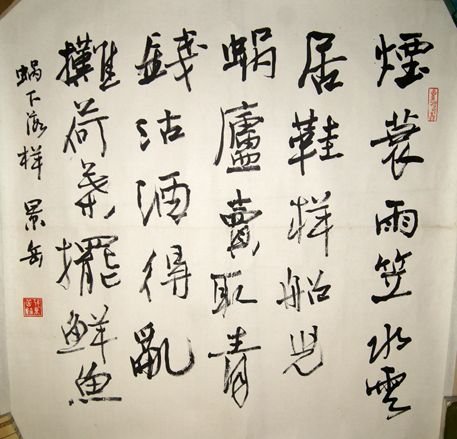 煙蓑雨笠水雲
居鞋样船兒
蝸廬賣取青
錢沽酒得亂
攤荷葉擺鮮魚
蝸下落样 景